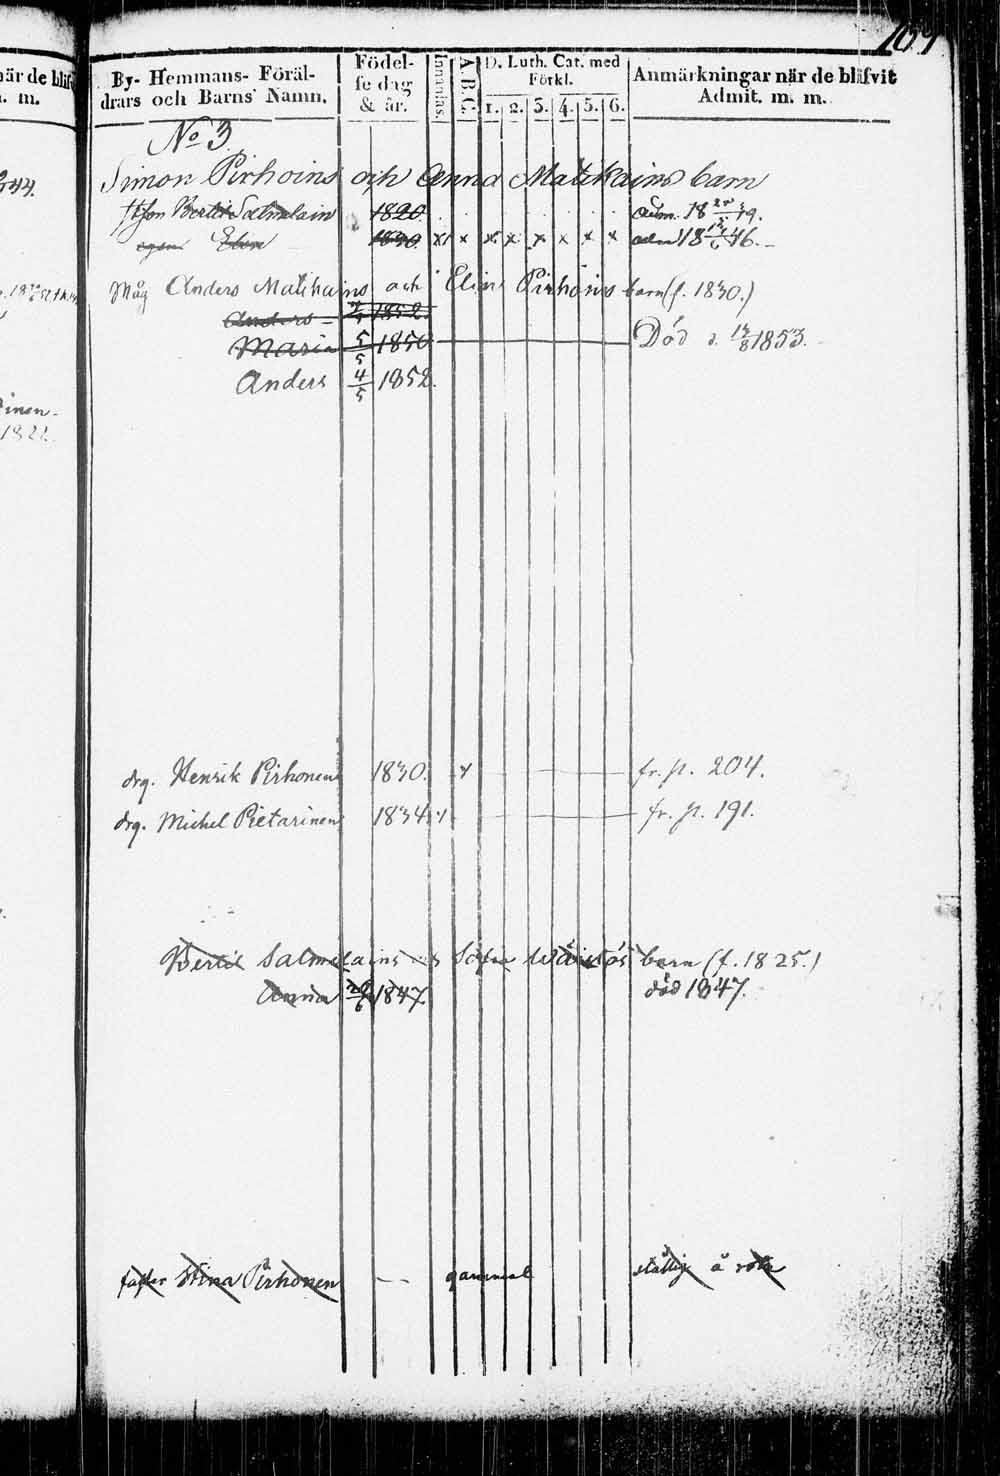 när de blifvit
. m. m.
By- Hemmans- Föräl-
drars och Barns' Namn.
Födel-
se dag
& år.
Innanläs.
A.B.C.
D. Luth. Cat. med
Förkl.
1. 2. 3. 4. 5. 6.
Anmärkningar när de blifvit
Admit. m. m.
No 3
Simon Pirhoins och Anna Matikains barn
Bertil Salmelain 1820. adm. 18 19.
1830 x x x x x x x adm 18 46.
Måg Anders Matikains och Elins Pirhoins barn (f. 1830.)
Anders 1852.
Maria 5/5 1850 Död d. 18/8 1853.
Anders 4/5 1852.
drg. Henrik Pirhonen 1830. fr. p. 204.
drg. Michel Pietarinen 1834. fr. p. 191.
Bertil Salmelains Sofia barn (f. 1825.)
Anna 1847. död 1847.
Stina Pirhonen — gammal